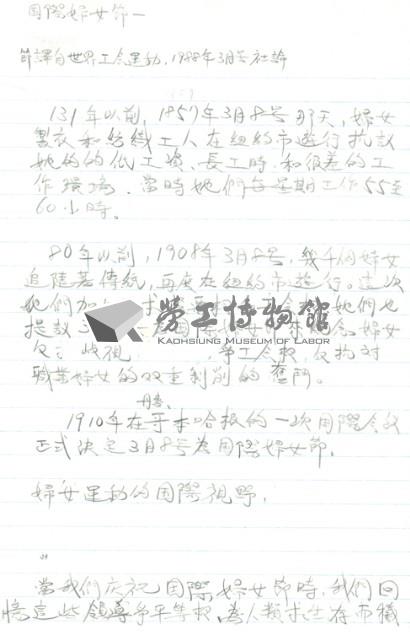 国際婦女節一
節譯自世界工会運動，1988年3月号社論
131年以前，1857年3月8号那天，婦女
製衣和紡織工人在纽约市遊行抗議
她的的低工資、長工時和很差的工
作環境．當時她們每星期工作55至
60小時。
80年以前，1908年3月8号，幾千個婦女
追隨著傳統，再度在纽约市遊行。這次
她們加 她們也
提議 婦女
反 歧視 等工会权，反抗对
職業婦女的双重剝削的奮鬥。
勞工博物館
KAOHSIUNG MUSEUM OF LABOR
丹麥、
1910年在哥本哈根的一次国際会议
正式決定3月8号為国際婦女節。
婦女運動的国際視野．
當我們庆祝国際婦女節時，我們回
憶這些領導爭平等权、為人類求生存而犧